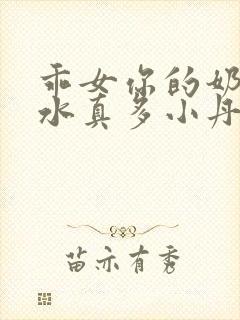 乖女你的奶
水真多小丹
苗亦有秀